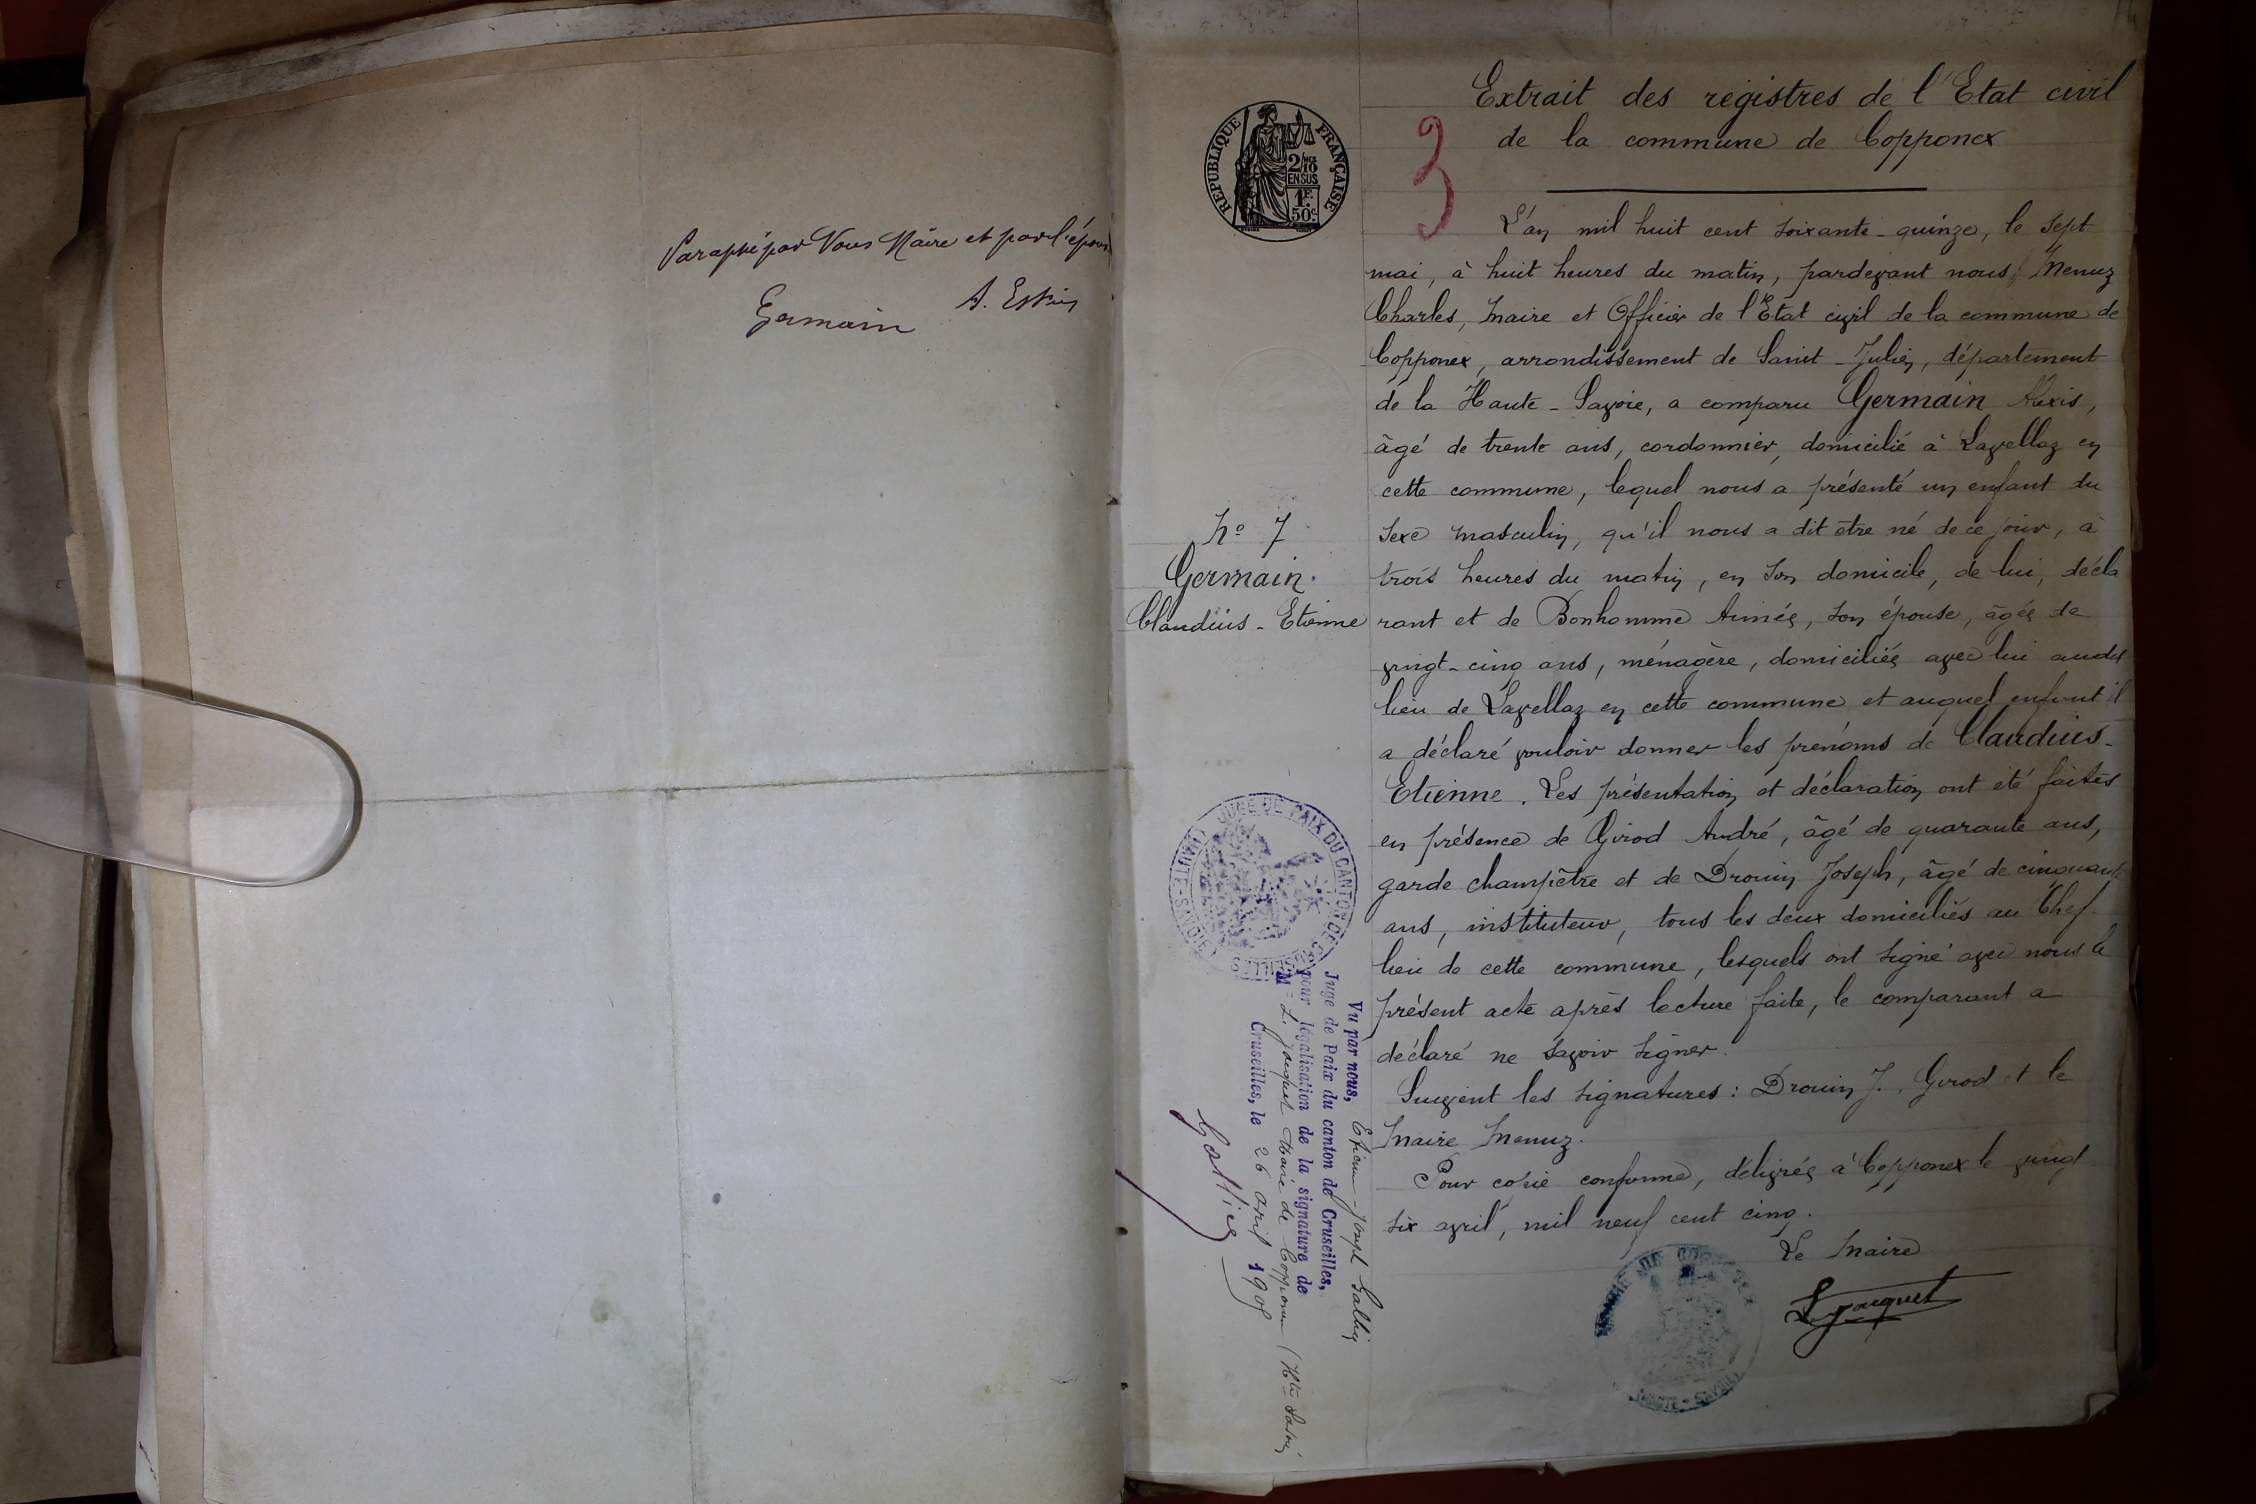 Paraphé par Nous Maire et par l'époux
Germain
Extrait des registres de l'Etat civil
de la commune de Copponex
3
REPUBLIQUE FRANÇAISE
2/10
EN SUS
1F.
50c.
L'an mil huit cent soixante-quinze, le sept
mai, à huit heures du matin, pardevant nous, Menuz
Charles, maire et Officier de l'Etat civil de la commune de
Copponex, arrondissement de Saint-Julien, département
de la Haute-Savoie, a comparu Germain Alexis,
âgé de trente ans, cordonnier, domicilié à Lavellaz en
cette commune, lequel nous a présenté un enfant du
sexe masculin, qu'il nous a dit être né de ce jour, à
trois heures du matin, en son domicile, de lui, décla
rant et de Bonhomme Aimée, son épouse, âgée de
vingt-cinq ans, ménagère, domiciliée avec lui audit
lieu de Lavellaz en cette commune et auquel enfant il
a déclaré vouloir donner les prénoms de Claudius-
Etienne. Les présentation et déclaration ont été faites
en présence de Girod André, âgé de quarante ans,
garde champêtre et de Drouin Joseph, âgé de cinquante
ans, instituteur, tous les deux domiciliés au Chef-
lieu de cette commune, lesquels ont signé avec nous le
présent acte après lecture faite, le comparant a
déclaré ne savoir signer.
Suivent les signatures : Drouin J., Girod et le
maire Menuz.
Pour copie conforme, délivrée à Copponex le vingt
six avril, mil neuf cent cinq.
Le Maire
L. Jacquet
No 7
Germain
Claudius-Etienne
JUGE DE PAIX DU CANTON DE CRUSEILLES
(HAUTE-SAVOIE)
Vu par nous, Etienne-Joseph
Juge de Paix du canton de Cruseilles,
pour légalisation de la signature de
M= L. Jacquet Maire de Copponex (Hte Savoie)
Cruseilles, le 26 avril 1905
MAIRIE DE COPPONEX
HAUTE-SAVOIE